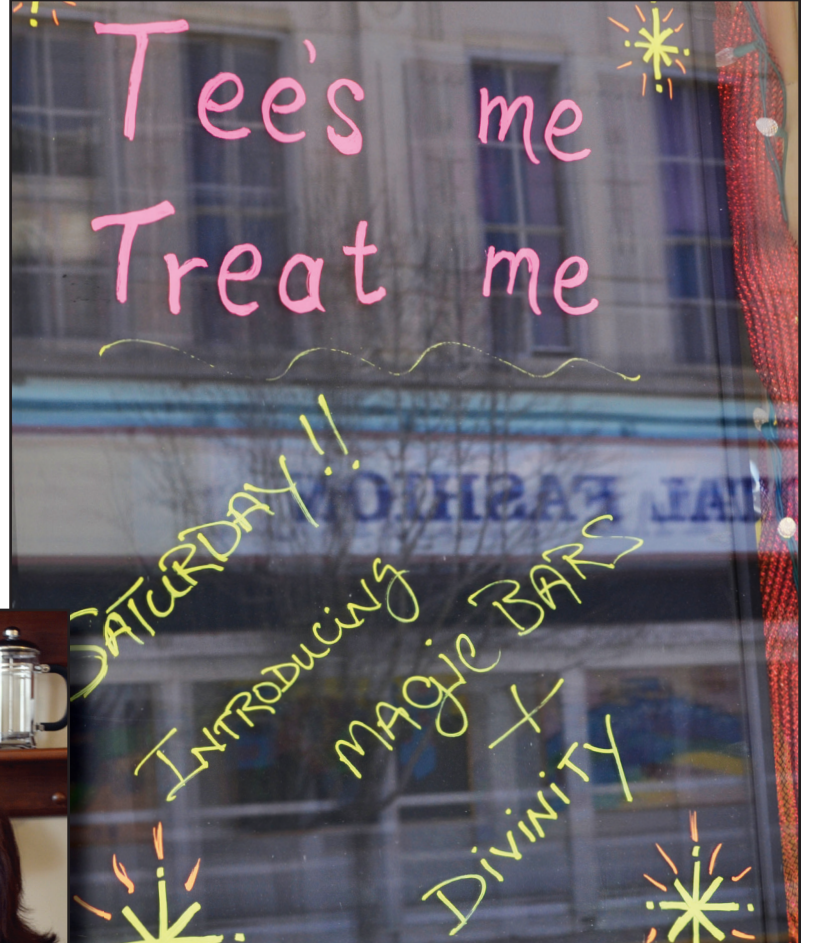 Tee's me
Treat me
SATURDAY!!
INTRODUCING
MAGIC BARS
+
DIVINITY
TAL FASHION